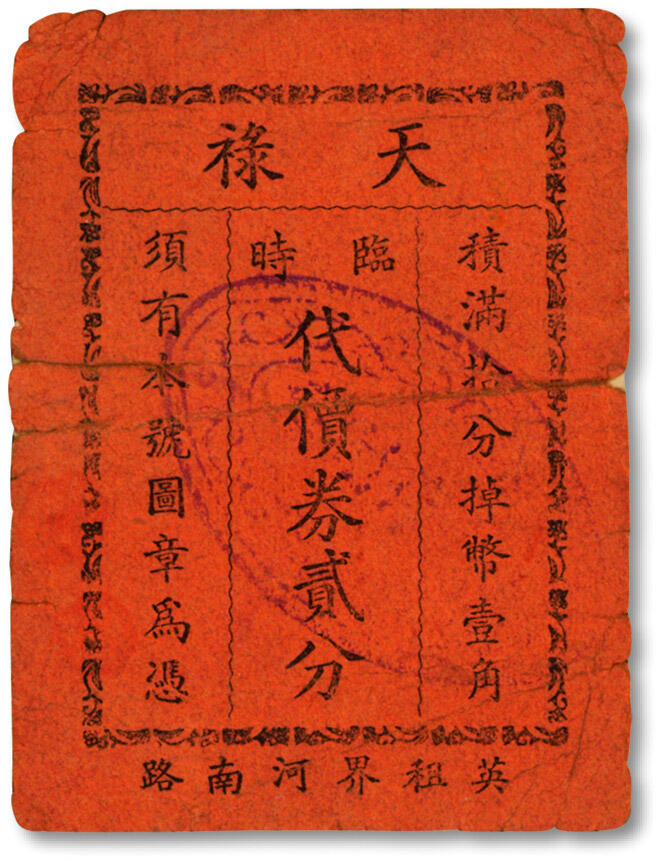 天祿
積滿拾分掉幣壹角
臨時
代價券貳分
須有本號圖章為憑
英租界河南路